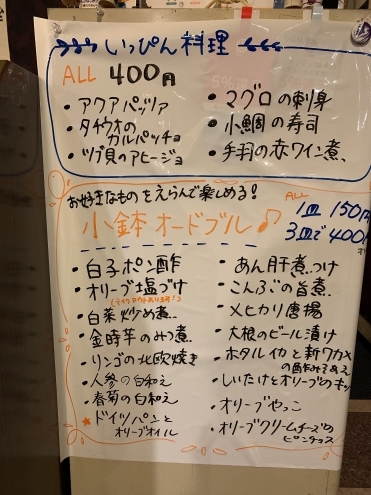 いっぴん料理
ALL 400円
・アクアパッツァ
・タチウオの
カルパッチョ
・ツブ貝のアヒージョ
・マグロの刺身
・小鯛の寿司
・手羽の赤ワイン煮
お好きなものをえらんで楽しめる!
小鉢オードブル♪
ALL
1皿 150円
3皿で 400
・白子ポン酢
・オリーブ塩づけ
(テイクアウトあります!)
・白菜炒め煮
・金時芋のみつ煮
・リンゴの北欧焼き
・人参の白和え
・春菊の白和え
★ドイツパンと
オリーブオイル
・あん肝煮つけ
・こんぶの旨煮
・メヒカリ唐揚
・大根のビール漬け
・ホタルイカと新ワカメ
の酢みそあえ
・しいたけとオリーブの
・オリーブやっこ
・オリーブクリームチーズの
ピンチョス